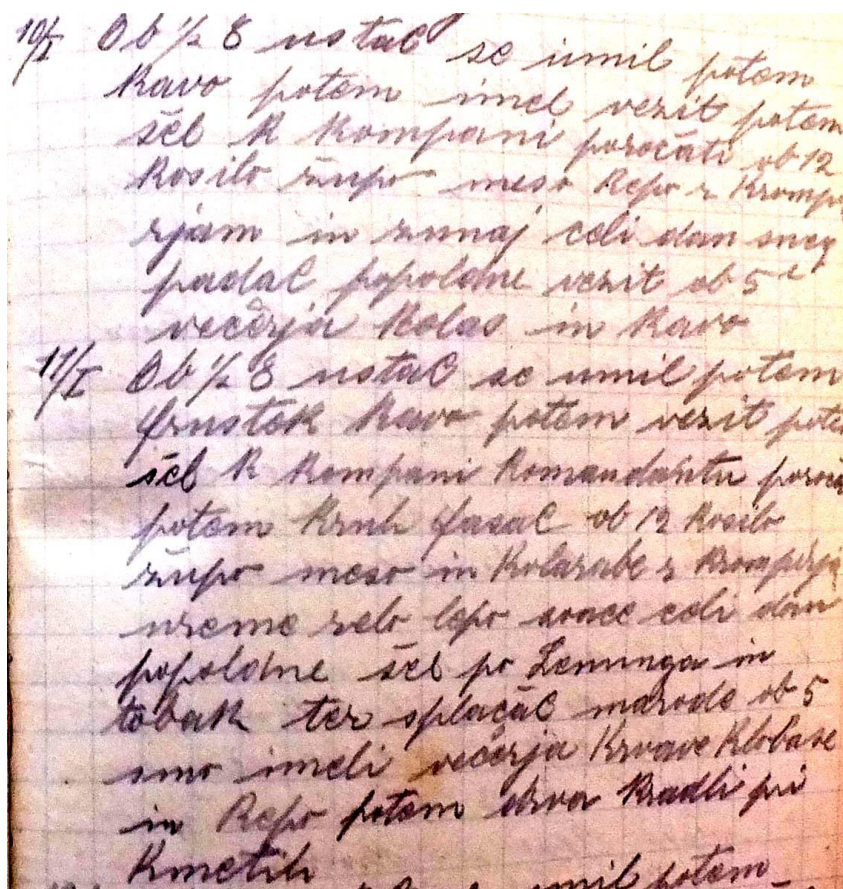 10/I Ob ½ 8 ustal se umil potem
kavo potem imel vezit potem
šel k kompani poročati ob 12
kosilo župo meso Repo z krompi
rjam in zunaj celi dan sneg
padal popoldne vezit ob 5
večerja kolas in kavo
11/I Ob ½ 8 ustal se umil potem
fruštek kavo potem vezit pote
šel k kompani komandantu poroča
potem kruh fasal ob 12 kosilo
župo meso in kolarabe z krompirja
vreme zelo lepo sonce celi dan
popoldne šel po Lenunga in
tobak ter splačal marode ob 5
smo imeli večerja krvave klobase
in Repo potem drva kradli pri
kmetih
umil potem